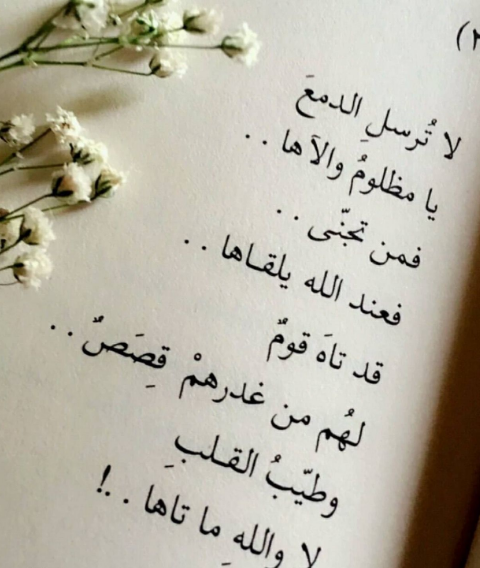 لا تُرسلِ الدمعَ
يا مظلومُ والآها . .
فمن تجنّى . .
فعند الله يلقاها . .
قد تاهَ قومٌ
لهُم من غدرهمْ قِصَصٌ . .
وطيّبُ القلبِ
لا واللهِ ما تاها . .!